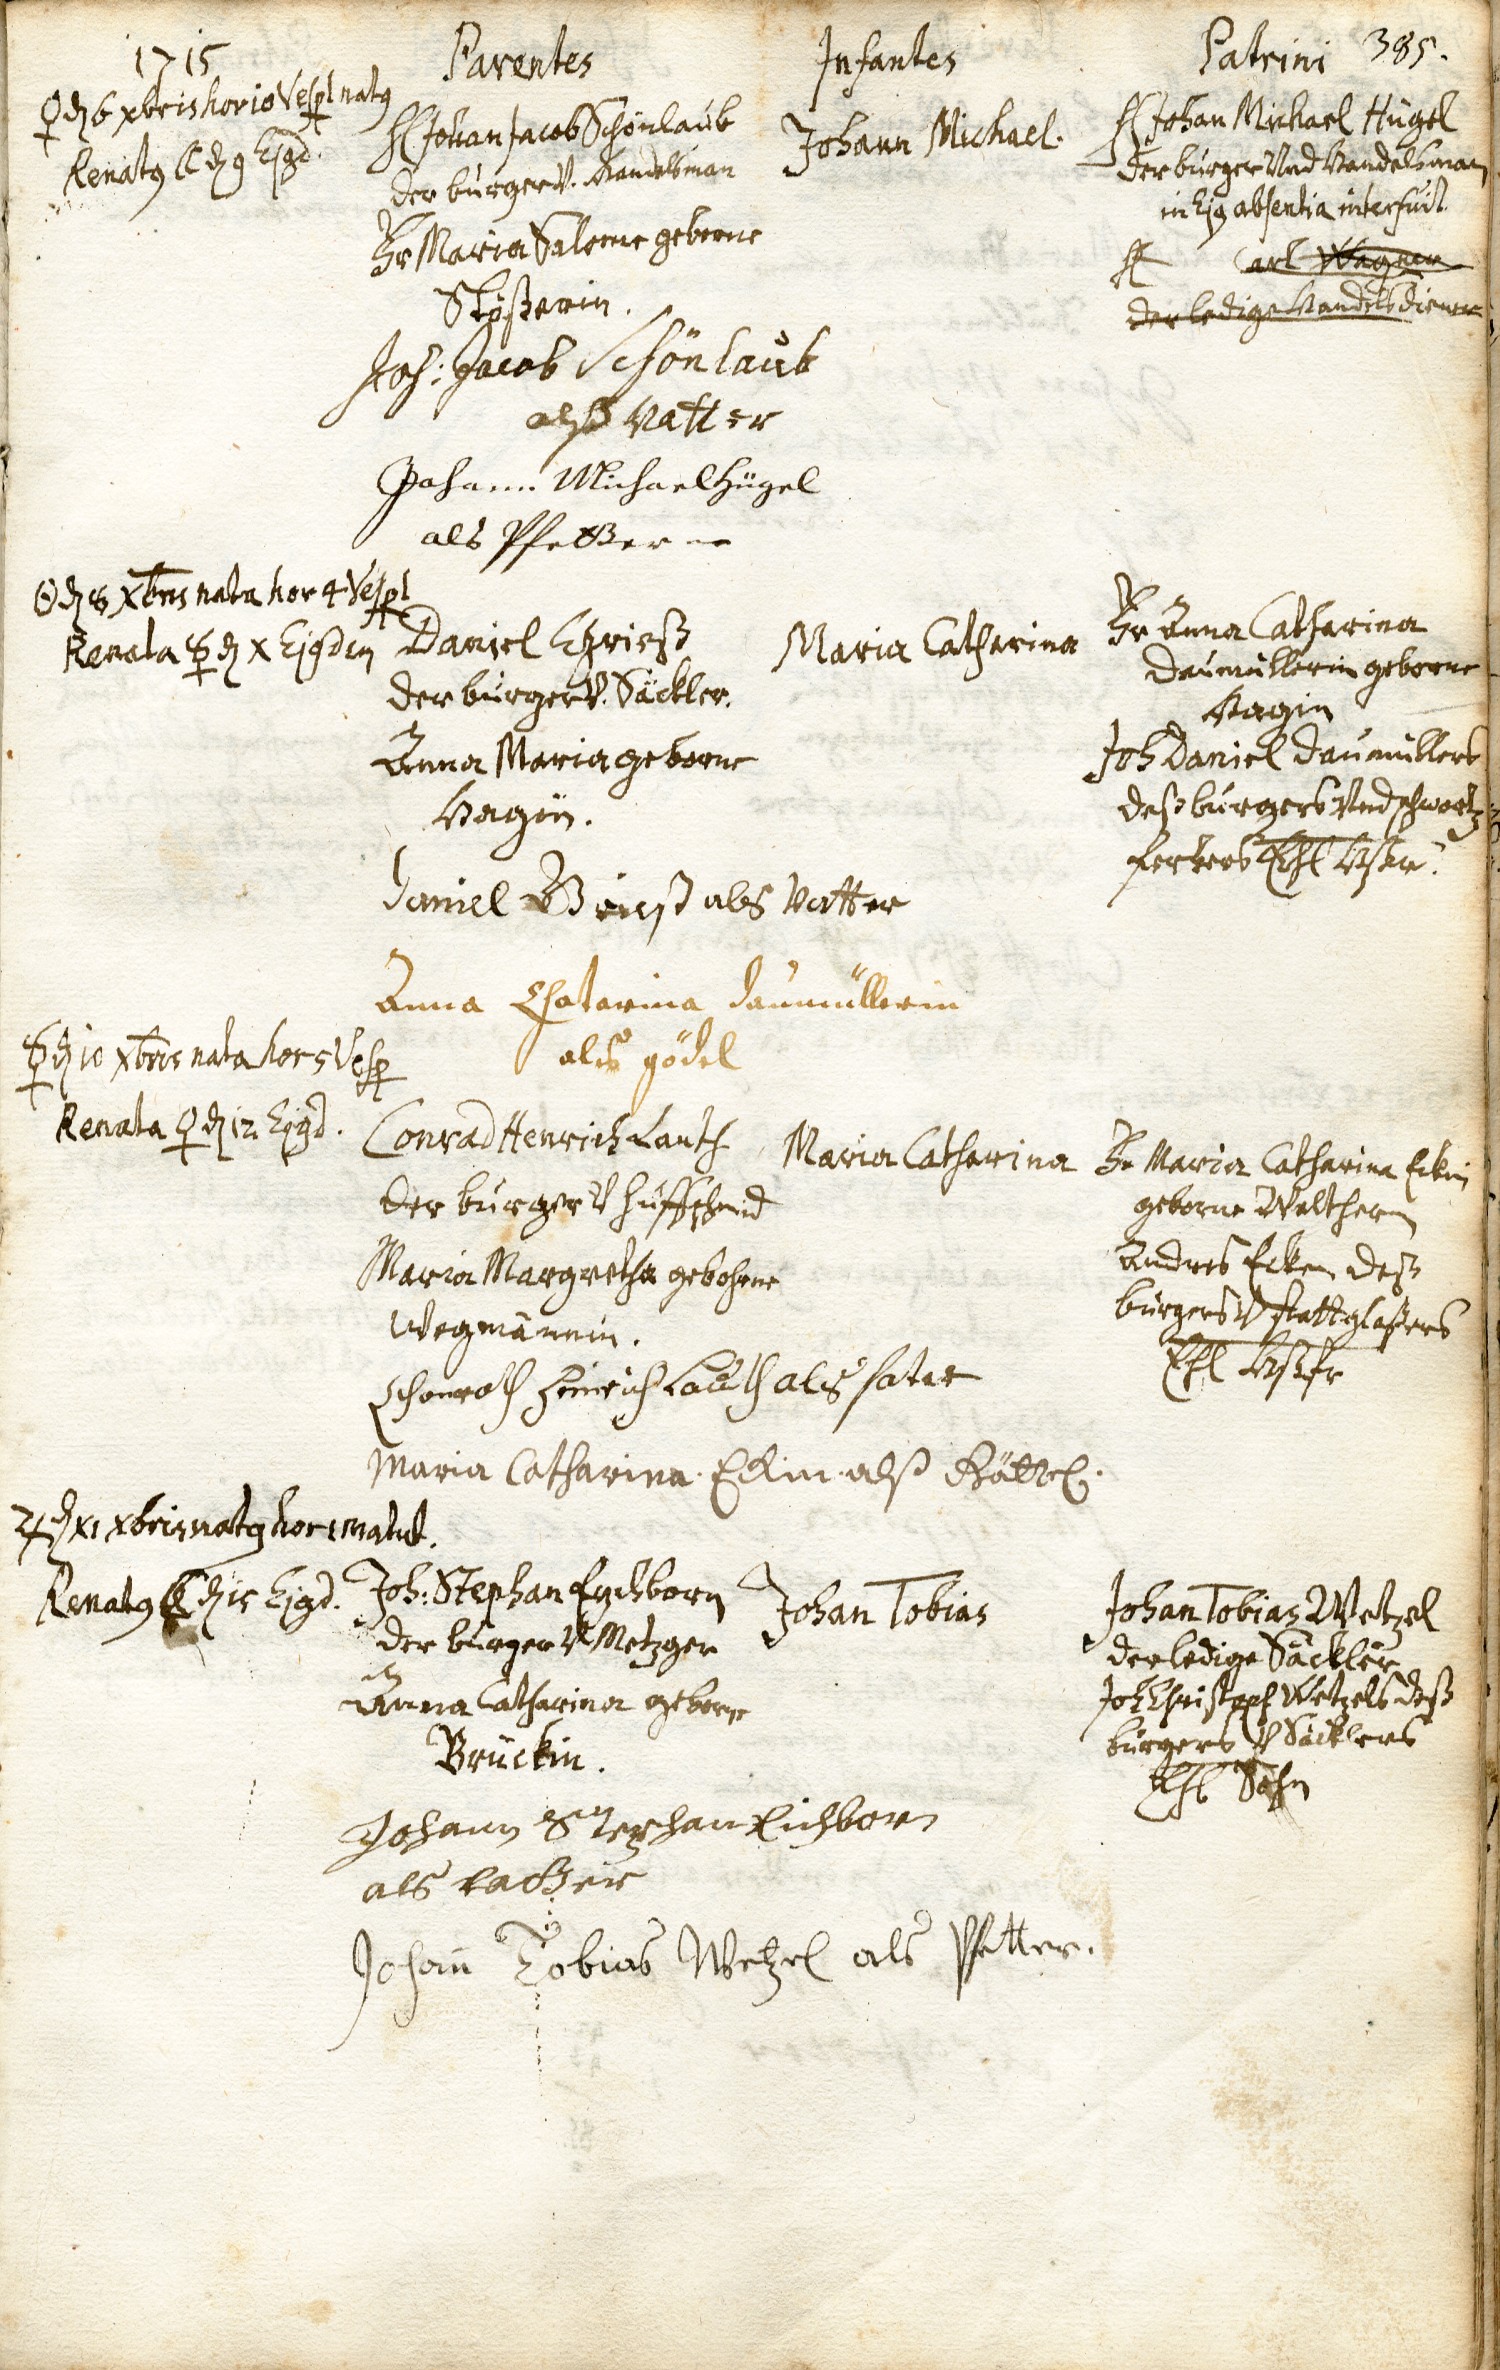 1715 Parentes Infantes Patrini 385.
♀ d 6 xbris hor 10 Vesp natg
Renatg ☾ d 9 Ejgd.
H Johan Jacob Schönlaub
der burger V. Handelsman
Fr Maria Salome geborne
Stößerin.
Joh: Jacob Schönlaub
alß Vatter
Johann Michael Hügel
als Pfetter
Johann Michael.
H Johan Michael Hügel
der burger Vnd Handelsman
in Ejg absentia interfuit
H Carl Wagner
der ledige Handelsdiener
☉ d 8 xbris nata hor 4 Vesp
Renata ☿ d X Ejgdem
Daniel
der burger V. Säckler.
Anna Maria geborne
Hagin.
Daniel als Vatter
Anna Chatarina Daumüllerin
als gödel
Maria Catharina
Fr Anna Catharina
Daumüllerin geborne
Hagin
Joh Daniel Daumüllers
deß burgers Vnd schwartz
ferbers Ehl
☿ d 10 xbris nata hor 5 Vesp
Renata ♀ d 12 Ejgd.
Conrad Henrich Lauth
der burger V huffschmid
Maria Margretha gebohrne
Wegmännin.
Chonrath Heinrich Lauth als fater
Maria Catharina Eckin alß Göttel.
Maria Catharina
Fr Maria Catharina Eckin
geborne Waltherin
Andres Ecken deß
burgers V stattglaßers
Ehl
♃ d XI xbris natg hor 1 matut.
Renatg ☾ d 15 Ejgd.
Joh: Stephan Eychborn
der burger V Metzger
Anna Catharina geborne
Brückin.
Johann Stephan Eichborn
als
Johan Tobias Wetzel als Pfetter.
Johan Tobias
Johan Tobias Wetzel
der ledige Säckler
Joh Christoph Wetzels deß
burgers V Säcklers
Ehl Sohn